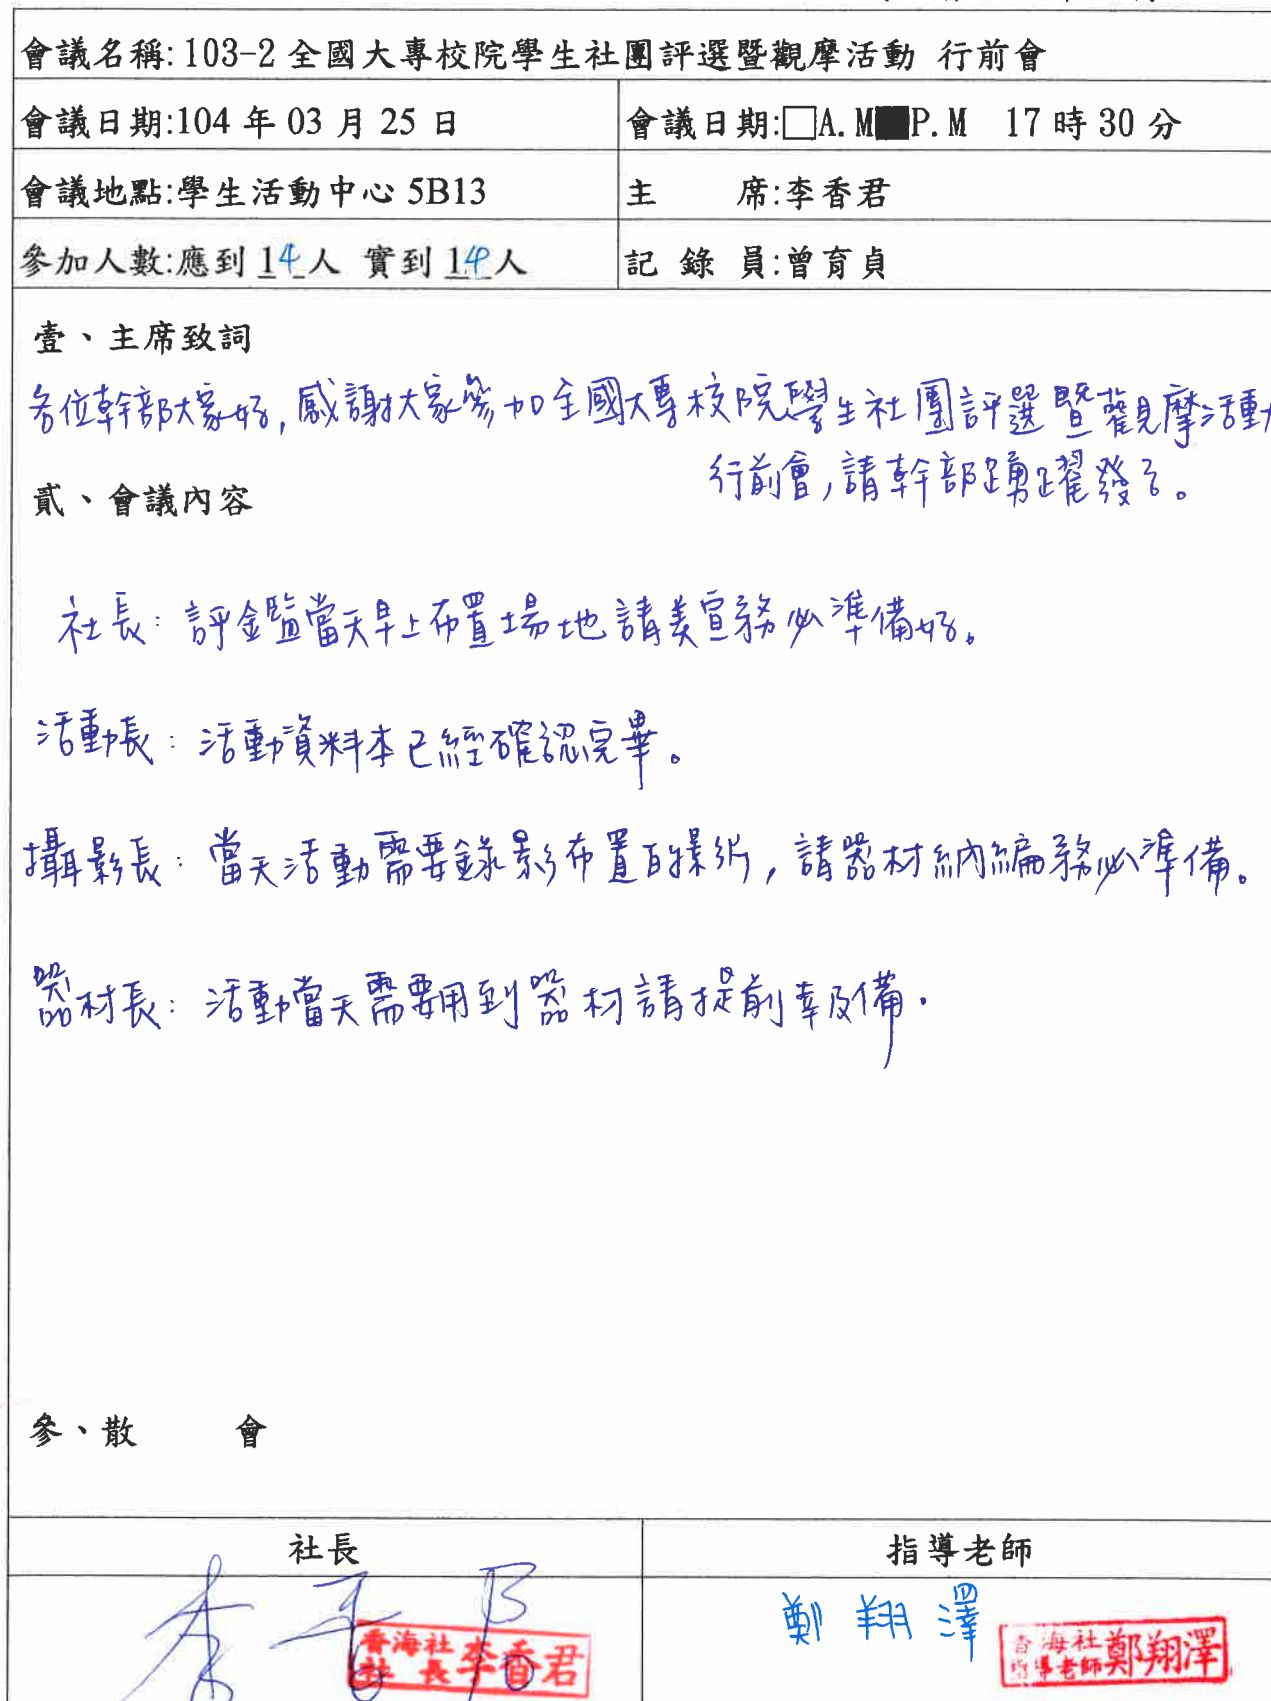 會議名稱:103-2 全國大專校院學生社團評選暨觀摩活動 行前會
會議日期:104 年 03 月 25 日
會議日期:□A.M■P.M 17時30分
會議地點:學生活動中心 5B13
主 席:李香君
參加人數:應到 14 人 實到 14 人
記 錄 員:曾育貞
壹、主席致詞
各位幹部大家好,感謝大家參加全國大專校院學生社團評選暨觀摩活動
行前會,請幹部踴躍發言。
貳、會議內容
社長:評鑑當天早上布置場地請美宣務必準備好。
活動長:活動資料本已經確認完畢。
攝影長:當天活動需要錄影布置,請器材納編務必準備。
器材長:活動當天需要用到器材請提前準備.
參、散 會
社長
指導老師
鄭翔澤
香海社
社長 李香君
香海社
指導老師 鄭翔澤